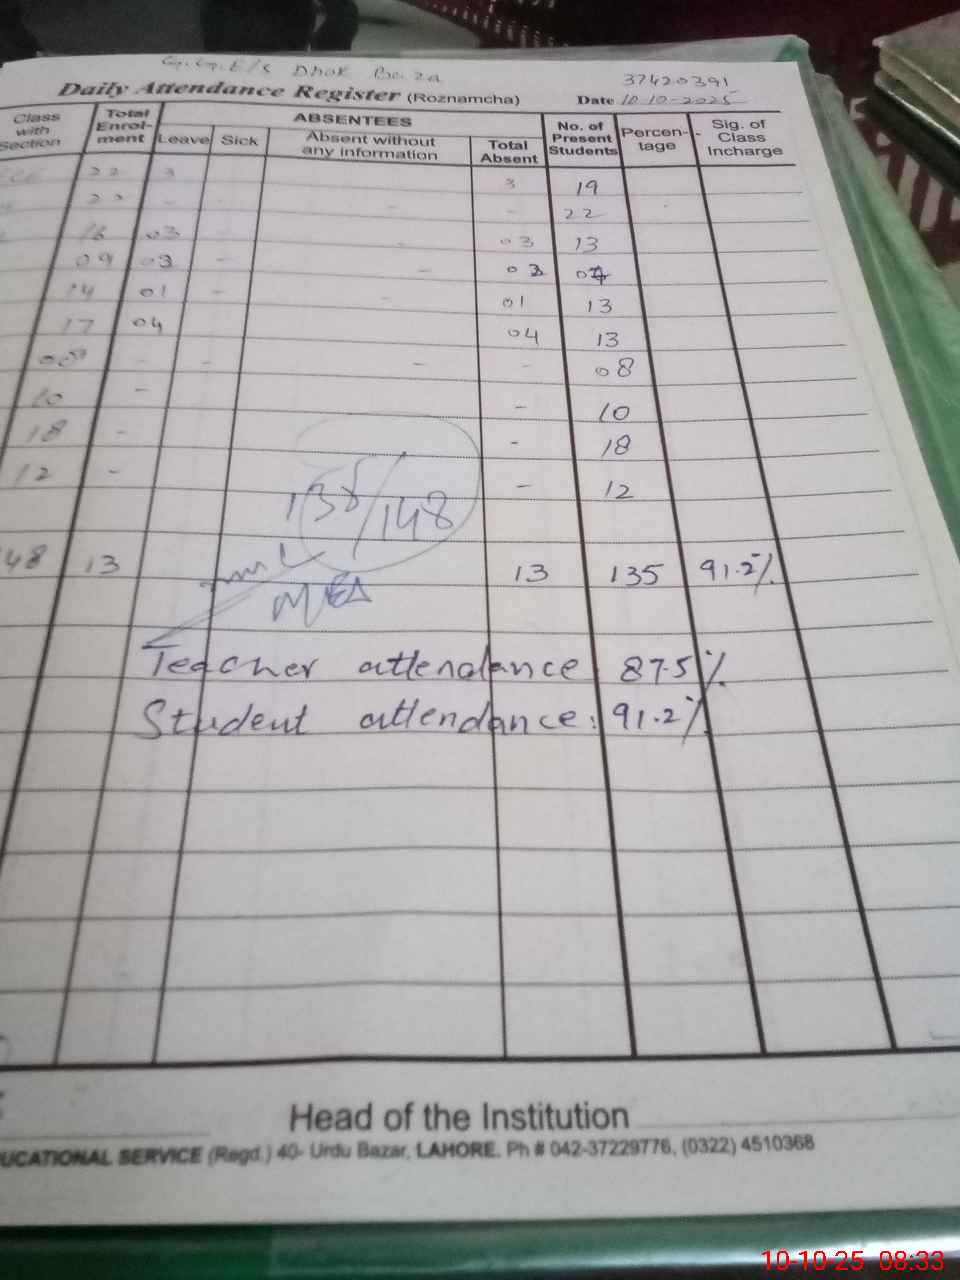 G.G.E/S Dhok Baiza 37420391
Daily Attendance Register (Roznamcha) Date 10-10-2025
Class with Section Total Enrol-ment ABSENTEES No. of Present Students Percen-tage Sig. of Class Incharge
Leave Sick Absent without any information Total Absent
22 3 3 19
22 - - - 22
16 03 - 03 13
09 03 - - 03 07
14 01 - - 01 13
17 04 04 13
08 - - - - 08
10 - - 10
18 - - 18
12 - - 12
135/148
48 13 13 135 91.2%
MEA
Teacher attendance 87.5%
Student attendance: 91.2%
Head of the Institution
UCATIONAL SERVICE (Regd.) 40- Urdu Bazar, LAHORE. Ph # 042-37229776, (0322) 4510368
10-10-25 08:33